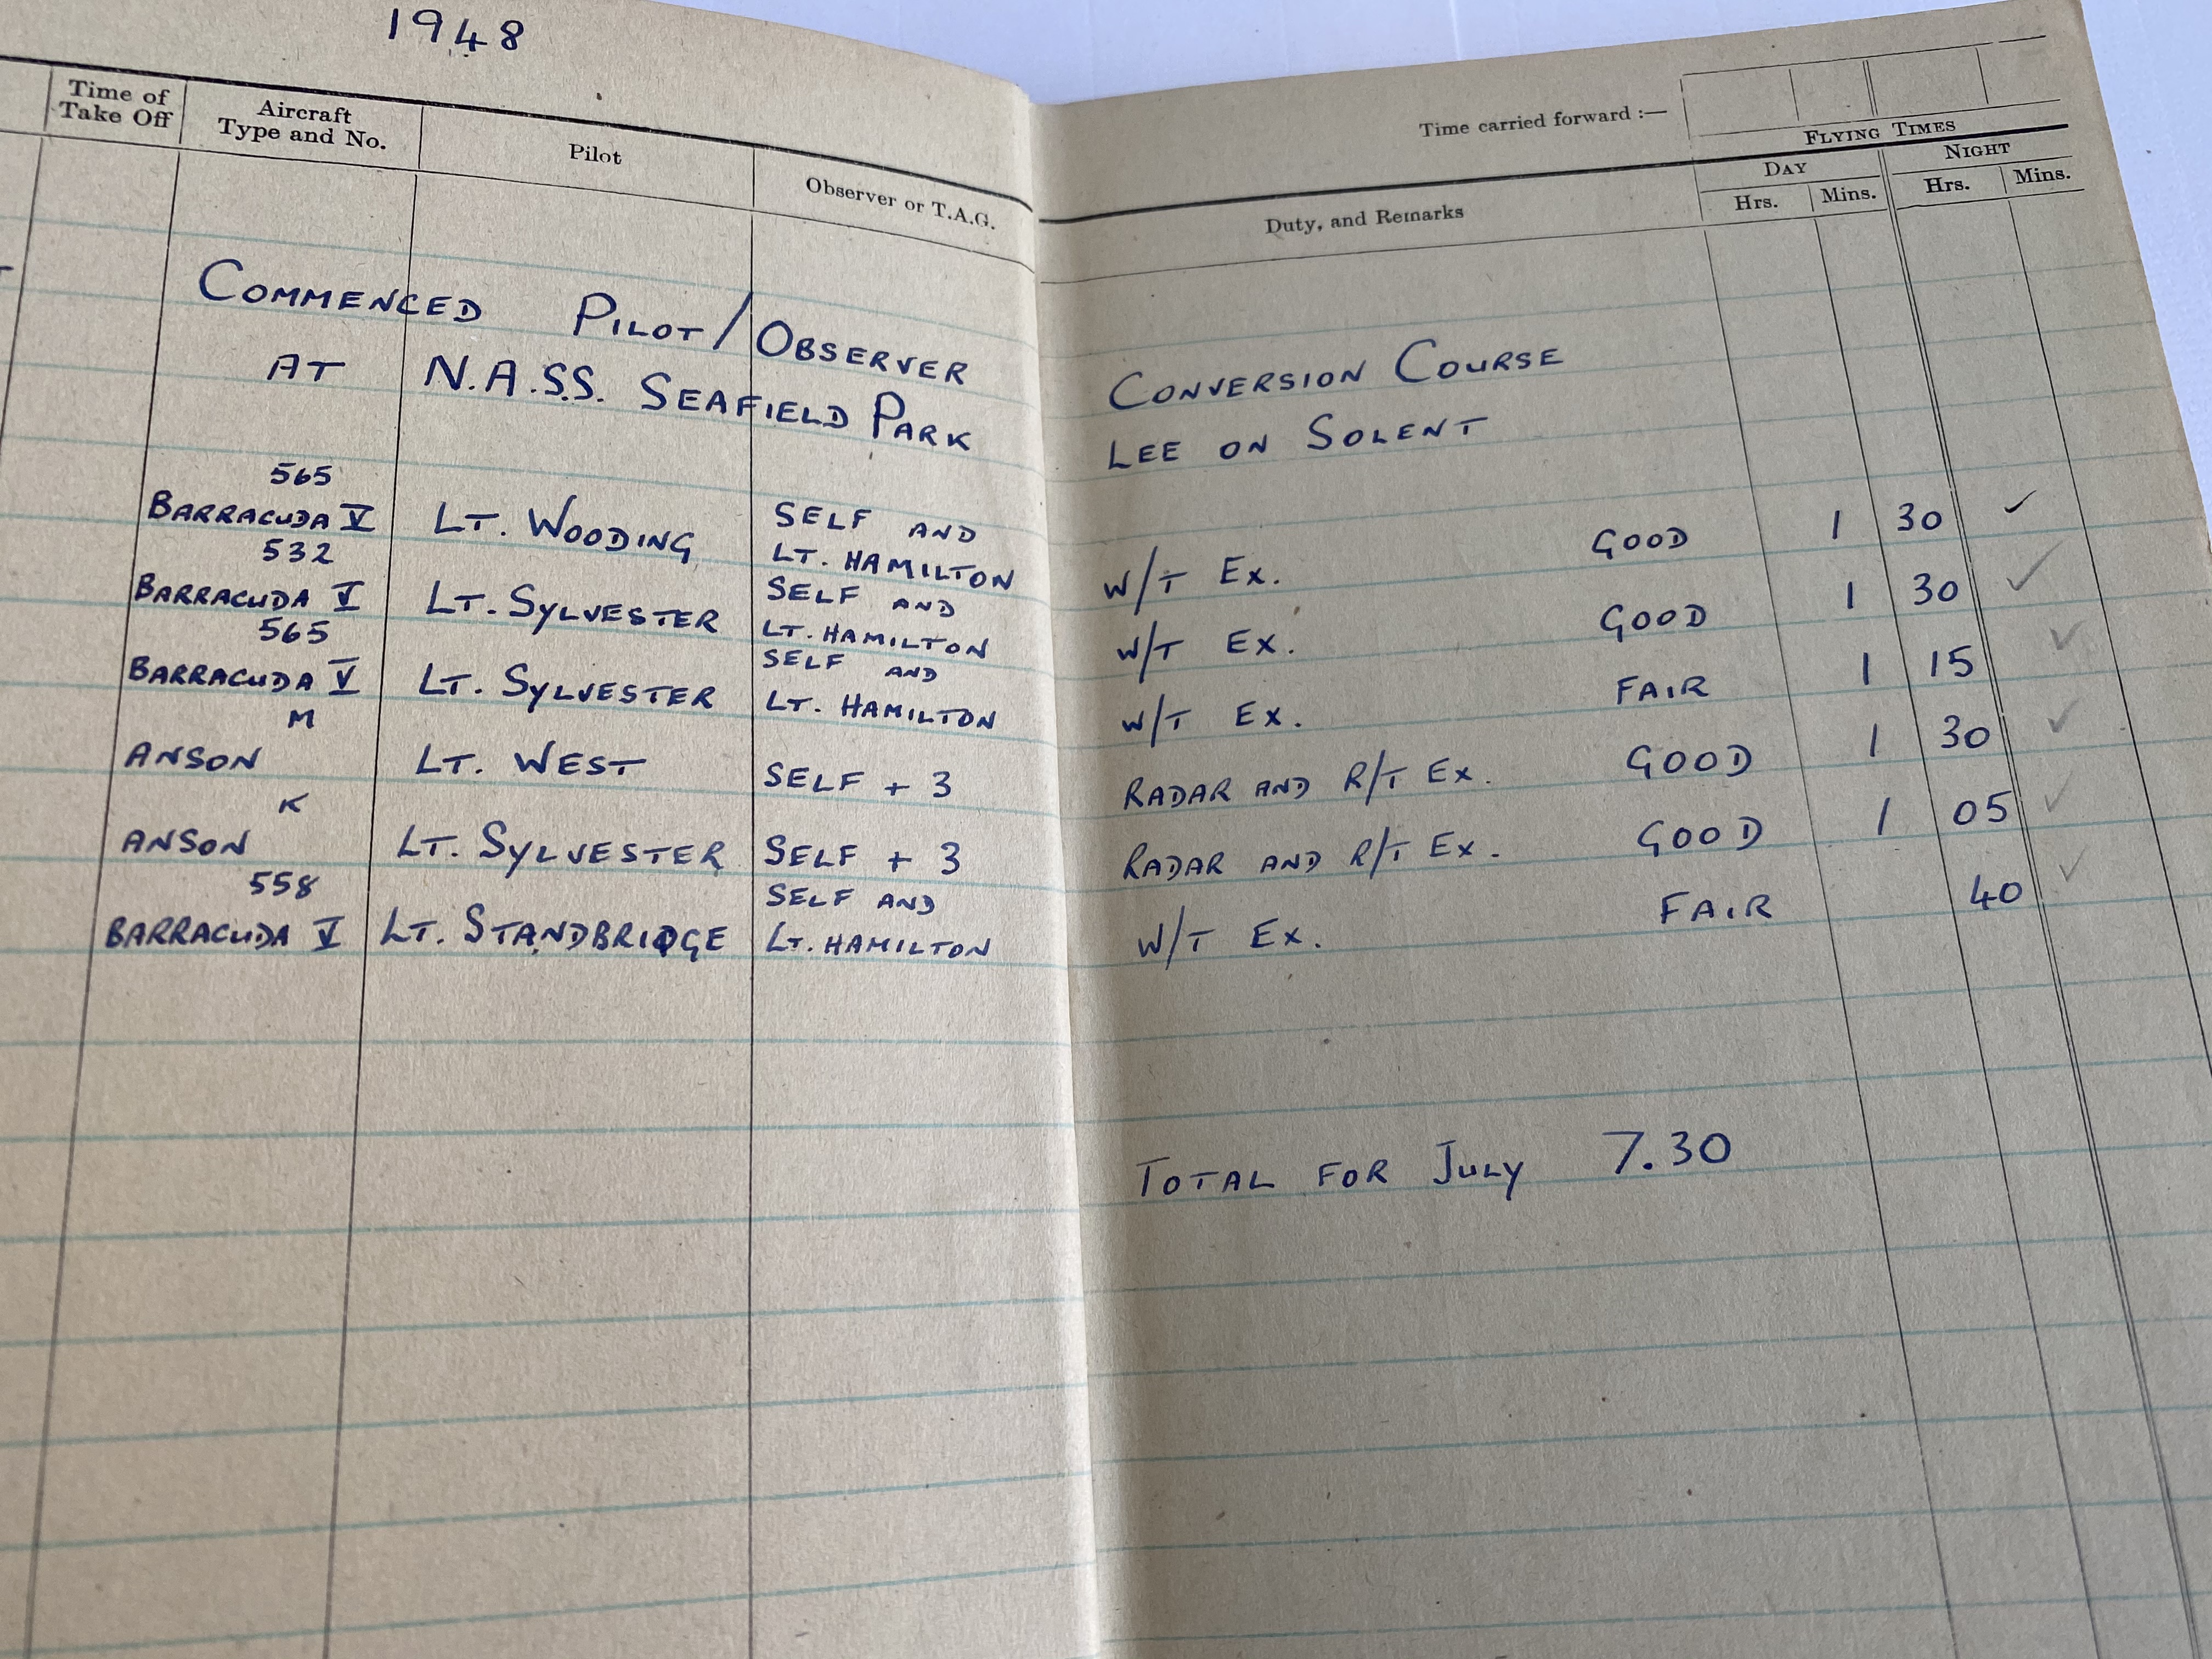 1948
Time carried forward :—
FLYING TIMES
Time of
Take Off
Aircraft
Type and No.
Pilot
Observer or T.A.G.
Duty, and Remarks
DAY
NIGHT
Hrs. Mins. Hrs. Mins.
COMMENCED PILOT/OBSERVER CONVERSION COURSE
AT N.A.S.S. SEAFIELD PARK LEE ON SOLENT
565
BARRACUDA V LT. WOODING SELF AND
LT. HAMILTON W/T EX. GOOD 1 30 ✓
532
BARRACUDA V LT. SYLVESTER SELF AND
LT. HAMILTON W/T EX. GOOD 1 30 ✓
565
BARRACUDA V LT. SYLVESTER SELF AND
LT. HAMILTON W/T EX. FAIR 1 15 ✓
M
ANSON LT. WEST SELF + 3 RADAR AND R/T EX. GOOD 1 30 ✓
K
ANSON LT. SYLVESTER SELF + 3 RADAR AND R/T EX. GOOD 1 05 ✓
558
BARRACUDA V LT. STANDBRIDGE SELF AND
LT. HAMILTON W/T EX. FAIR 40 ✓
TOTAL FOR JULY 7.30